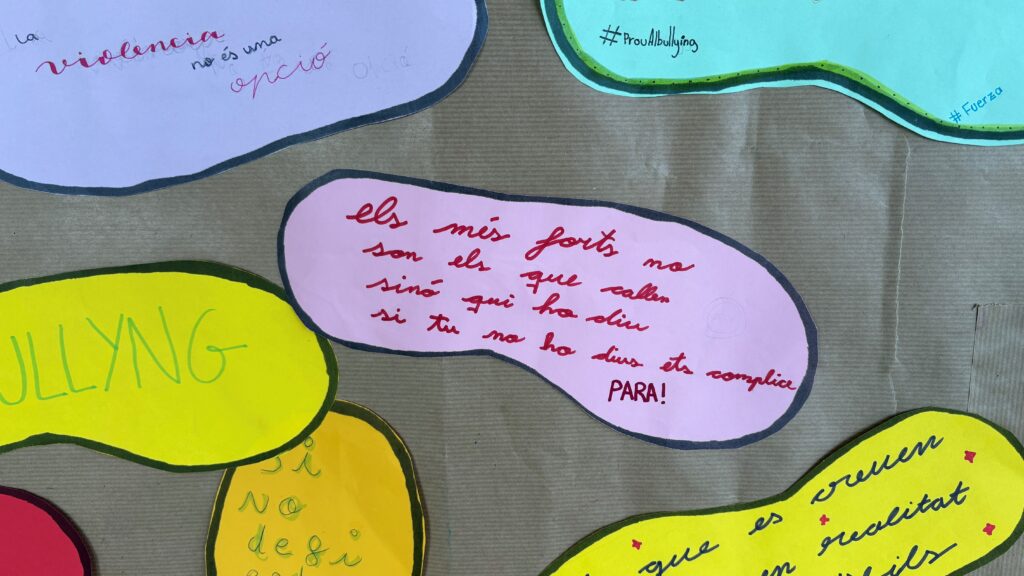 la
violencia
no és una
opció
#ProuAlbullying
#Fuerza
els més forts no
son els que callen
sinó qui ho diu
si tu no ho dius ets complice
PARA!
ULLYNG
si
NO
desi
que es creuen
en realitat